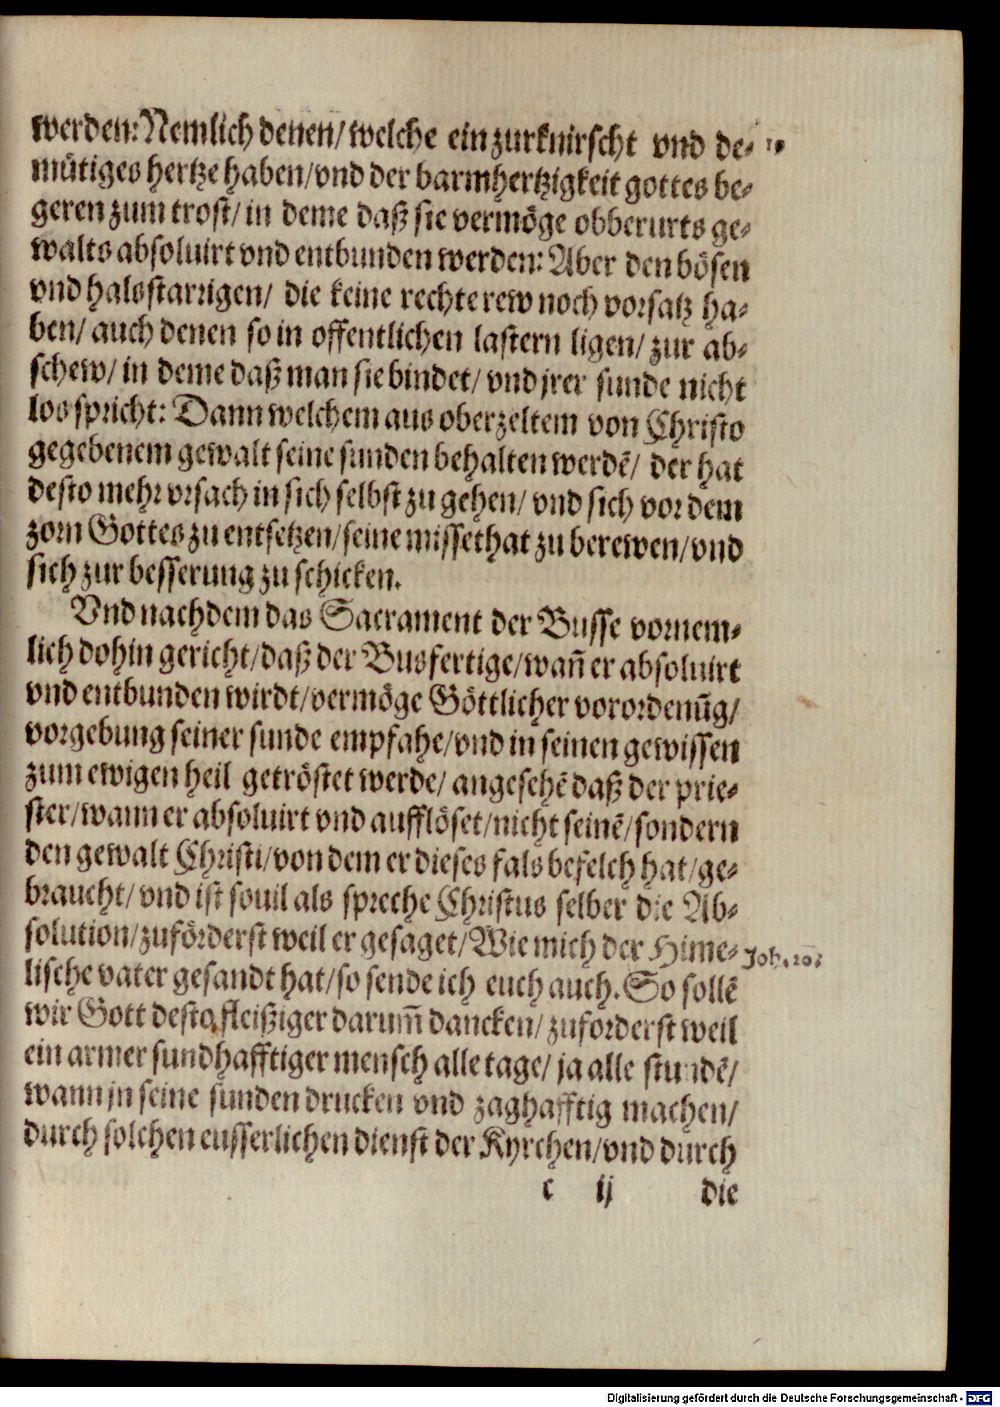 werden: Nemlich denen/ welche ein zurknirscht vnd de-
mütiges hertze haben/ vnd der barmhertzigkeit gottes be-
geren zum trost/ in deme daß sie vermöge obberurts ge-
walts absoluirt vnd entbunden werden: Aber den bösen
vnd halsstarrigen/ die keine rechte rew noch vorsatz ha-
ben/ auch denen so in offentlichen lastern ligen/ zur ab-
schew/ in deme daß man sie bindet/ vnd jrer sunde nicht
los spricht: Dann welchem aus oberzeltem von Christo
gegebenem gewalt seine sunden behalten werdē/ der hat
desto mehr vrsach in sich selbst zu gehen/ vnd sich vor dem
zorn Gottes zu entsetzen/ seine missethat zu berewen/ vnd
sich zur besserung zu schicken.
Vnd nachdem das Sacrament der Busse vornem-
lich dohin gericht/ daß der Busfertige/ wañ er absoluirt
vnd entbunden wirdt/ vermöge Göttlicher vorordenūg/
vorgebung seiner sunde empfahe/ vnd in seinen gewissen
zum ewigen heil getröstet werde/ angesehē daß der prie-
ster/ wann er absoluirt vnd aufflöset/ nicht seinē/ sondern
den gewalt Christi/ von dem er dieses fals befelch hat/ ge-
braucht/ vnd ist souil als spreche Christus selber die Ab-
solution/ zuförderst weil er gesaget/ Wie mich der Hime-
Joh. 20.
lische vater gesandt hat/ so sende ich euch auch. So sollē
wir Gott desto fleißiger darum̄ dancken/ zuforderst weil
ein armer sundhafftiger mensch alle tage/ ja alle stundē/
wann jn seine sunden drucken vnd zaghafftig machen/
durch solchen eusserlichen dienst der Kyrchen/ vnd durch
c ij die
Digitalisierung gefördert durch die Deutsche Forschungsgemeinschaft - DFG